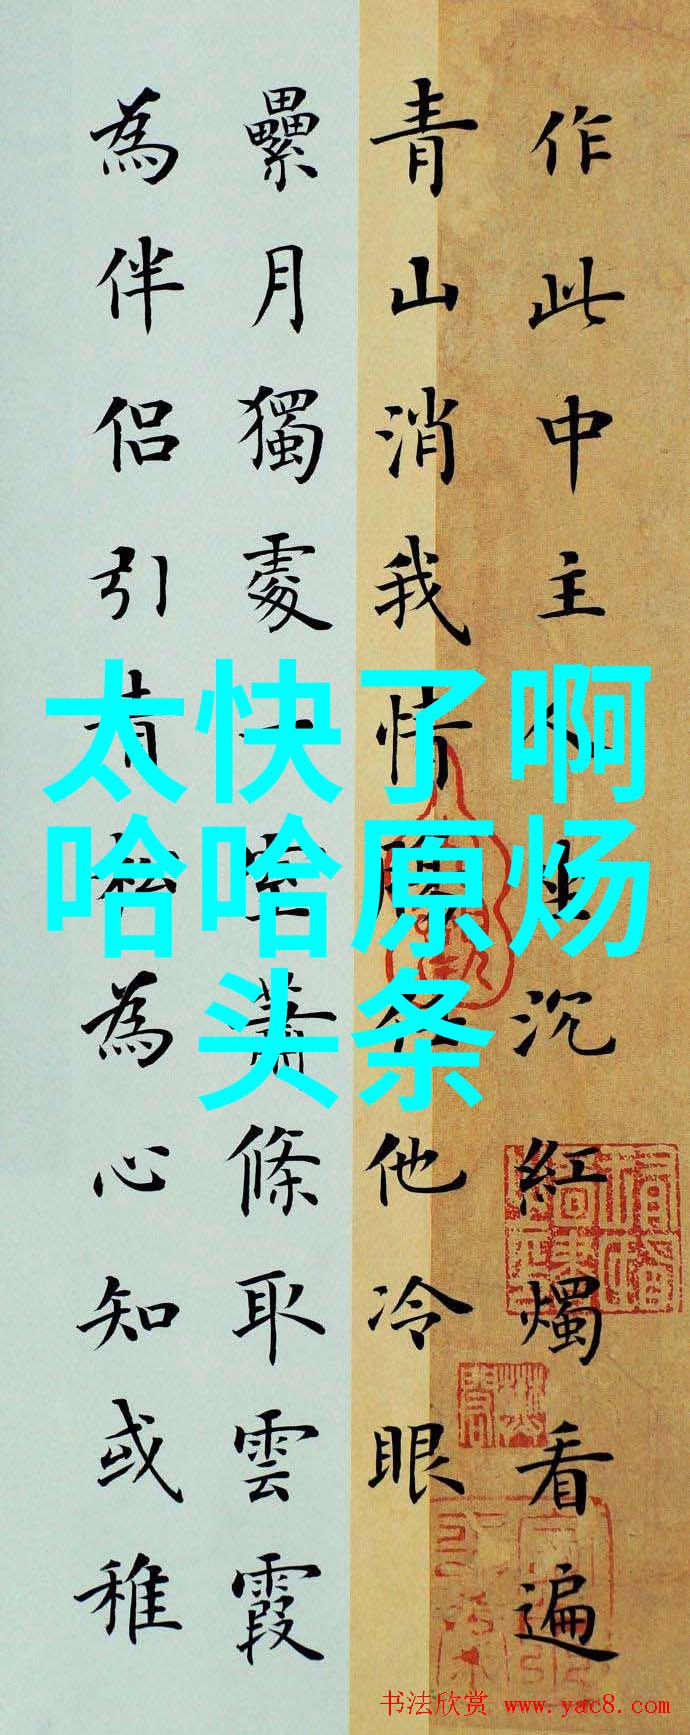 作此中主人坐沉紅燭看遍
青山消我情任他冷眼
纍月獨處一室蕭條取雲霞
為伴侶引青松為心知或稚
太快了啊
哈哈原炀
头条
书法欣赏 www.yac8.com